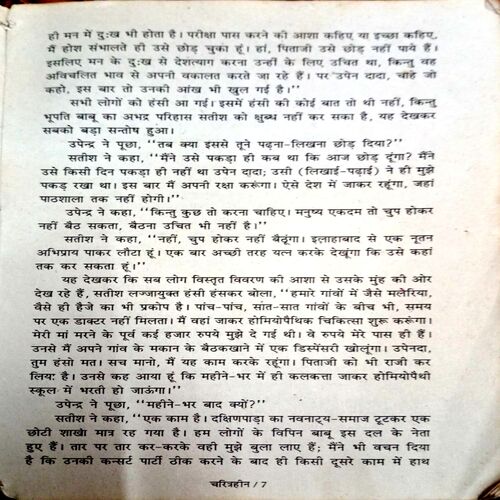 ही मन में दुःख भी होता है। परीक्षा पास करने की आशा कहिए या इच्छा कहिए,
मैं होश संभालते ही उसे छोड़ चुका हूं। हां, पिताजी उसे छोड़ नहीं पाये हैं।
इसलिए मन के दुःख से देशत्याग करना उन्हीं के लिए उचित था, किन्तु वह
अविचलित भाव से अपनी वकालत करते जा रहे हैं। पर उपेन दादा, चाहे जो
कहो, इस बार तो उनकी आंख भी खुल गई है।''
सभी लोगों को हंसी आ गई। इसमें हंसी की कोई बात तो थी नहीं, किन्तु
भूपति बाबू का अभद्र परिहास सतीश को क्षुब्ध नहीं कर सका है, यह देखकर
सबको बड़ा सन्तोष हुआ।
उपेन्द्र ने पूछा, ''तब क्या इससे तूने पढ़ना-लिखना छोड़ दिया?''
सतीश ने कहा, ''मैंने उसे पकड़ा ही कब था कि आज छोड़ दूंगा? मैंने
उसे किसी दिन पकड़ा ही नहीं था उपेन दादा; उसी (लिखाई-पढ़ाई) ने ही मुझे
पकड़ रखा था। इस बार मैं अपनी रक्षा करूंगा। ऐसे देश में जाकर रहूंगा, जहां
पाठशाला तक नहीं होगी।''
उपेन्द्र ने कहा, ''किन्तु कुछ तो करना चाहिए। मनुष्य एकदम तो चुप होकर
नहीं बैठ सकता, बैठना उचित भी नहीं है।''
सतीश ने कहा, ''नहीं, चुप होकर नहीं बैठूंगा। इलाहाबाद से एक नूतन
अभिप्राय पाकर लौटा हूं। एक बार अच्छी तरह यत्न करके देखूंगा कि उसे कहां
तक कर सकता हूं।''
यह देखकर कि सब लोग विस्तृत विवरण की आशा से उसके मुंह की ओर
देख रहे हैं, सतीश लज्जायुक्त हंसी हंसकर बोला, ''हमारे गांवों में जैसे मलेरिया,
वैसे ही हैजे का भी प्रकोप है। पांच-पांच, सांत-सात गांवों के बीच भी, समय
पर एक डाक्टर नहीं मिलता। मैं वहां जाकर होमियोपैथिक चिकित्सा शुरू करूंगा।
मेरी मां मरने के पूर्व कई हजार रुपये मुझे दे गई थी। वे रुपये मेरे पास ही हैं।
उनसे मैं अपने गांव के मकान के बैठकखाने में एक डिस्पेंसरी खोलूंगा। उपेनदा,
तुम हंसो मत। सच मानो, मैं यह काम करके रहूंगा। पिताजी को भी राजी कर
लिया है। उनसे कह आया हूं कि महीने-भर में ही कलकत्ता जाकर होमियोपैथी
स्कूल में भरती हो जाऊंगा।''
उपेन्द्र ने पूछा, ''महीने-भर बाद क्यों?''
सतीश ने कहा, ''एक काम है। दक्षिणपाड़ा का नवनाट्य-समाज टूटकर एक
छोटी शाखा मात्र रह गया है। हम लोगों के विपिन बाबू इस दल के नेता
हुए हैं। तार पर तार कर-करके वही मुझे बुला लाए हैं; मैंने भी वचन दिया
है कि उनकी कन्सर्ट पार्टी ठीक करने के बाद ही किसी दूसरे काम में हाथ
चरित्रहीन / 7